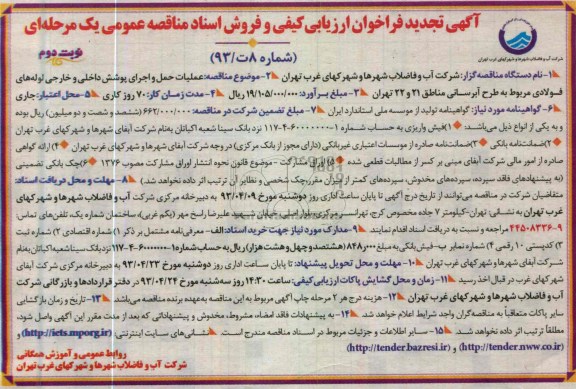 آگهی تجدید فراخوان ارزیابی کیفی و فروش اسناد مناقصه عمومی یک مرحله‌ای
(شماره ۸ت/۹۳)
نوبت دوم
شرکت آب و فاضلاب شهرها و شهرکهای غرب تهران
۱- نام دستگاه مناقصه‌گزار: شرکت آب و فاضلاب شهرها و شهرکهای غرب تهران ۲- موضوع مناقصه: عملیات حمل و اجرای پوشش داخلی و خارجی لوله‌های
فولادی مربوط به طرح آبرسانی مناطق ۲۱ و ۲۲ تهران ۳- مبلغ برآورد: ۱۹/۱۰۵/۰۰۰/۰۰۰ ریال ۴- مدت زمان کار: ۷۰ روز کاری ۵- محل اعتبار: جاری
۶- گواهینامه مورد نیاز: گواهینامه تولید از موسسه ملی استاندارد ایران ۷- مبلغ تضمین شرکت در مناقصه: ۶۶۲/۰۰۰/۰۰۰ (ششصد و شصت و دو میلیون) ریال بوده
و به یکی از انواع ذیل می‌باشد: ۱) فیش واریزی به حساب شماره ۱-۶۰۰۰۰۰۰-۴-۱۱۷ نزد بانک سینا شعبه اکباتان به‌نام شرکت آبفای شهرها و شهرکهای غرب تهران
۲) ضمانتنامه بانکی ۳) ضمانتنامه صادره از موسسات اعتباری غیربانکی (دارای مجوز از بانک مرکزی) در وجه شرکت آبفای شهرها و شهرکهای غرب تهران ۴) ارائه گواهی
صادره از امور مالی شرکت آبفای مبنی بر کسر از مطالبات قطعی شده ۵) اوراق مشارکت - موضوع قانون نحوه انتشار اوراق مشارکت مصوب ۱۳۷۶ ۶) چک بانکی تضمینی
(به پیشنهادهای فاقد سپرده، سپرده‌های مخدوش، سپرده‌های کمتر از میزان مقرر، چک شخصی و نظایر آن ترتیب اثر داده نخواهد شد.) ۸- مهلت و محل دریافت اسناد:
متقاضیان شرکت در مناقصه می‌توانند از تاریخ درج آگهی تا پایان ساعت اداری روز دوشنبه مورخ ۹۳/۰۴/۰۹ به دبیرخانه مرکزی شرکت آب و فاضلاب شهرها و شهرکهای
غرب تهران به نشانی: تهران-کیلومتر ۷ جاده مخصوص کرج، تهرانسر مرکزی، بلوار اصلی، خیابان شهید علیرضا راسخ مهر (یکم غربی)، ساختمان شماره یک، تلفن‌های تماس:
۹-۴۴۵۰۸۳۳۶ مراجعه و نسبت به دریافت اسناد اقدام نمایند. ۹- مدارک مورد نیاز جهت خرید اسناد: الف- معرفی‌نامه مشتمل بر ذکر ۱) شماره اقتصادی ۲) شماره ثبت
۳) کدپستی ۱۰ رقمی ۴) شماره نمابر ب- فیش بانکی به مبلغ ۸۴۸/۰۰۰ (هشتصد و چهل و هشت هزار) ریال به حساب شماره ۱-۶۰۰۰۰۰۰-۴-۱۱۷ نزد بانک سینا شعبه اکباتان به‌نام
شرکت آبفای شهرها و شهرکهای غرب تهران ۱۰- مهلت و محل تحویل پیشنهاد: تا پایان ساعت اداری روز دوشنبه مورخ ۹۳/۰۴/۲۳ به دبیرخانه مرکزی شرکت آبفای
شهرکهای غرب در قبال اخذ رسید ۱۱- زمان و محل گشایش پاکات ارزیابی کیفی: ساعت ۱۴:۳۰ روز سه‌شنبه مورخ ۹۳/۰۴/۲۴ در دفتر قراردادها و بازرگانی شرکت
آب و فاضلاب شهرها و شهرکهای غرب تهران ۱۲- هزینه درج هر ۲ مرحله چاپ آگهی مربوط به این مناقصه به‌عهده برنده مناقصه می‌باشد. ۱۳- تاریخ و زمان بازگشایی
سایر پاکات متعاقباً به مناقصه‌گران واجد شرایط اعلام خواهد شد. ۱۴- به پیشنهادات فاقد امضاء، مشروط، مخدوش و پیشنهاداتی که بعد از مدت مقرر این آگهی واصل شود،
مطلقاً ترتیب اثر داده نخواهد شد. ۱۵- سایر اطلاعات و جزئیات مربوط در اسناد مناقصه مندرج است. نشانی‌های سایت اینترنتی: (http://iets.mporg.ir) و
(http://tender.nww.co.ir) و (http://tender.bazresi.ir)
روابط عمومی و آموزش همگانی
شرکت آب و فاضلاب شهرها و شهرکهای غرب تهران